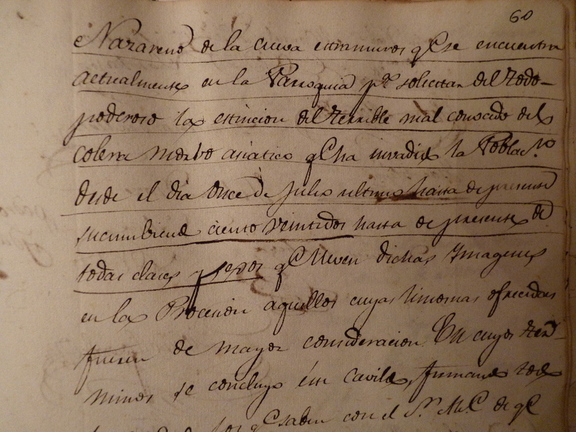 60
Nazareno de la cueva extramuros q.e se encuentra
actualmente en la Parroquia p.a solicitar del Todo-
poderoso la estincion del terrible mal conocido del
colera morbo asiatico q.e ha invadido la Poblac.on
desde el dia once de Julio ultimo hasta de presente
sucumbiendo ciento veintidos hasta de presente de
todas clases y sexos q.e lleven dichas Imagenes
en la Procesion aquellos cuyas limosnas ofrecidas
fuesen de mayor consideracion En cuyos ter
minos se concluyo este cavildo, firmando
q.e saben con el S.r de q.e